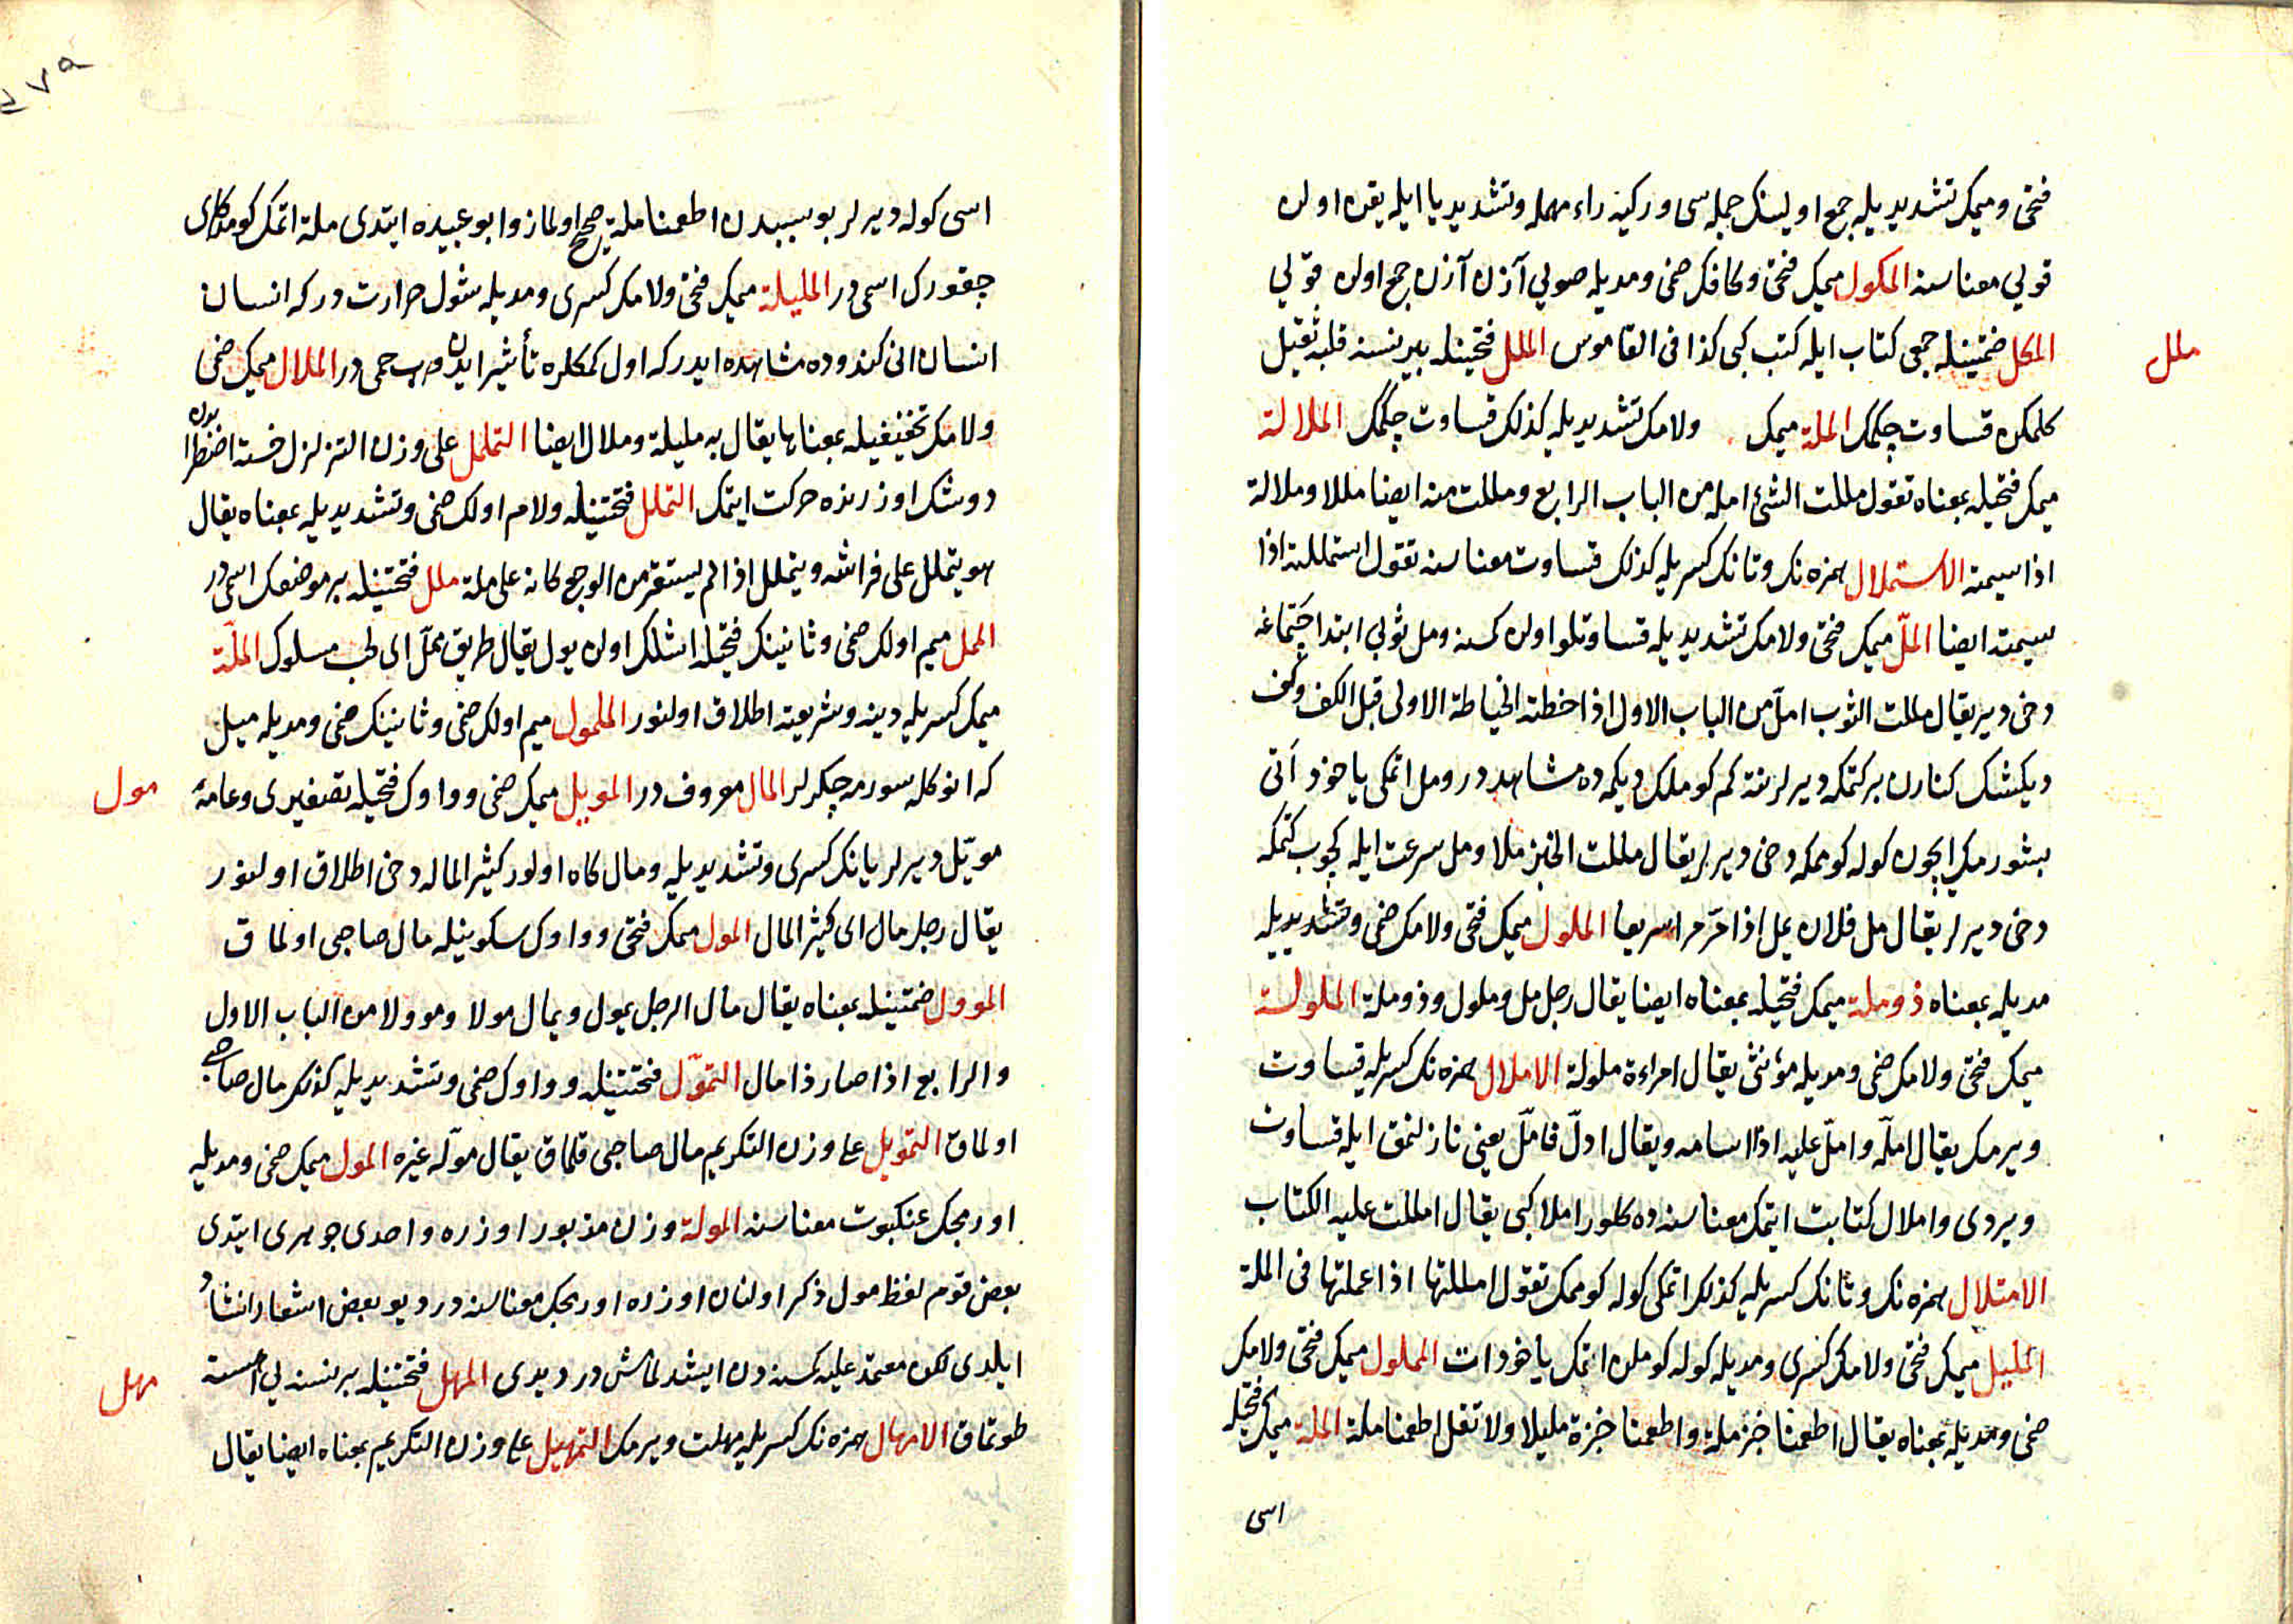 فتحى وميمك تشديديله جمع اولينك جمله سى وركيه راء مهمله وتشديد يا ايله يقه اولن
قويى معناسنه المكول ميمك فتحى وكافك ضمى ومديله صويى آزن آزن جمع اولن قويى
ملل
المكل ضمتينله جمعى كتاب ايله كتب كبى كذا فى القاموس الملل فتحتينله بيرنسنه قلبه ثقيل
كلمكن قساوت چكمك الملة ميمك ولامك تشديديله كذلك قساوت چكمك الملالة
ميمك فتحيله بمعناه تقول مللت الشئ امله من الباب الرابع ومللت منه ايضا مللا وملالة
اذا سيمته الاستملال همزه نك وتانك كسريله كذلك قساوت معناسنه تقول استمللته اذا
سيمته ايضا الملّ ميمك فتحى ولامك تشديديله قساوتلو اولن كمسنه ومل ثوبى ابتدا
دخى دير يقال مللت الثوب املّ من الباب الاول اذا خطته الخياطة الاولى قبل الكف وكف
ديكشك كنارن بركتمكه ديرلر نته كم كوملك ديكمه ده مشاهددر ومل اتمكى ياخود آتى
بشورمك ايچون كوله كوممكه دخى ديرلر يقال مللت الخبز ملا ومل سرعت ايله كچوب كتمكه
دخى ديرلر يقال مل فلان يمل اذا مرّ مرا سريعا الملول ميمك فتحى ولامك ضمى وتشديديله
مديله بمعناه ذو ملة ميمك فتحيله بمعناه ايضا يقال رجل مل وملول وذو ملة الملولة
ميمك فتحى ولامك ضمى ومديله مؤنثى يقال امراءة ملولة الاملال همزه نك كسريله قساوت
ويرمك يقال املّه واملّ عليه اذا اسامه ويقال ادلّ فاملّ يعنى نازلنمق ايله قساوت
ويردى واملال كتابت ايتمك معناسنه ده كلور املا كبى يقال امللت عليه الكتاب
الامتلال همزه نك وتانك كسريله كذلك اتمكى كوله كوممك تقول امللتها اذا عملتها فى الملة
المليل ميمك فتحى ولامك كسرى ومديله كوله كوملن اتمك ياخود ات المملول ميمك فتحى ولامك
ضمى ومديله بمعناه يقال اطعمنا خبز ملة واطعمنا خبزة مليلا ولا تقل اطعمنا ملة الملة ميمك فتحيله
اسى
اسى كوله ديرلر بو سببدن اطعمنا ملة صحيح اولماز وابو عبيده ايتدى ملة اتمك
چقورك اسمى در المليلة ميمك فتحى ولامك كسرى ومديله شول حرارت در كه انسان
انسان انى كندوده مشاهده ايدر كه اول كمكلره تأثير ايدن حمى در الملال ميمك ضمى
ولامك تخفيفيله بمعناها يقال به مليلة وملال ايضا التململ على وزن التزلزل خسته اضطرابدن
دوشك اوزرنده حركت ايتمك التملل فتحتينله ولام اولك ضمى وتشديديله بمعناه يقال
هو يتملل على فراشه ويتململ اذا لم يستقر من الوجع كانه على ملة ملل فتحتينله بر موضعك اسمى در
الممل ميم اولك ضمى وثانينك فتحيله اشلك اولن يول يقال طريق مملّ اى لحب مسلوك الملّة
ميمك كسريله دينه وشريعته اطلاق اولنور الملمول ميم اولك ضمى وثانينك ضمى ومديله ميل
مول
كه انوكله سورمه چكرلر المال معروف در المويل ميمك ضمى وواوك فتحيله تصغيرى وعامه
مويّل ديرلر يانك كسرى وتشديديله ومال كاه اولور كثير الماله دخى اطلاق اولنور
يقال رجل مال اى كثير المال المول ميمك فتحى وواوك سكونيله مال صاحبى اولماق
الموول ضمتينله بمعناه يقال مال الرجل يمول ويمال مولا ومولا من الباب الاول
والرابع اذا صار ذا مال التموّل فتحتينله وواوك ضمى وتشديديله كذلك مال صاحبى
اولماق التمويل على وزن التكريم مال صاحبى قلماق يقال موّله غيره المول ميمك ضمى ومديله
اورمجك عنكبوت معناسنه المولة وزن مزبور اوزره واحدى جوهرى ايتدى
بعض قوم لفظ مول ذكر اولنان اوزره اورمجك معناسنه در ديو بعض اشعار انشاد
مهل
ايلدى لكن معتمد عليه كمسنه دن ايشدلمامش در ديدى المهل فتحتينله بر نسنه يى اهسته
طوتماق الامهال همزه نك كسريله مهلت ويرمك التمهيل على وزن التكريم بمعناه ايضا يقال